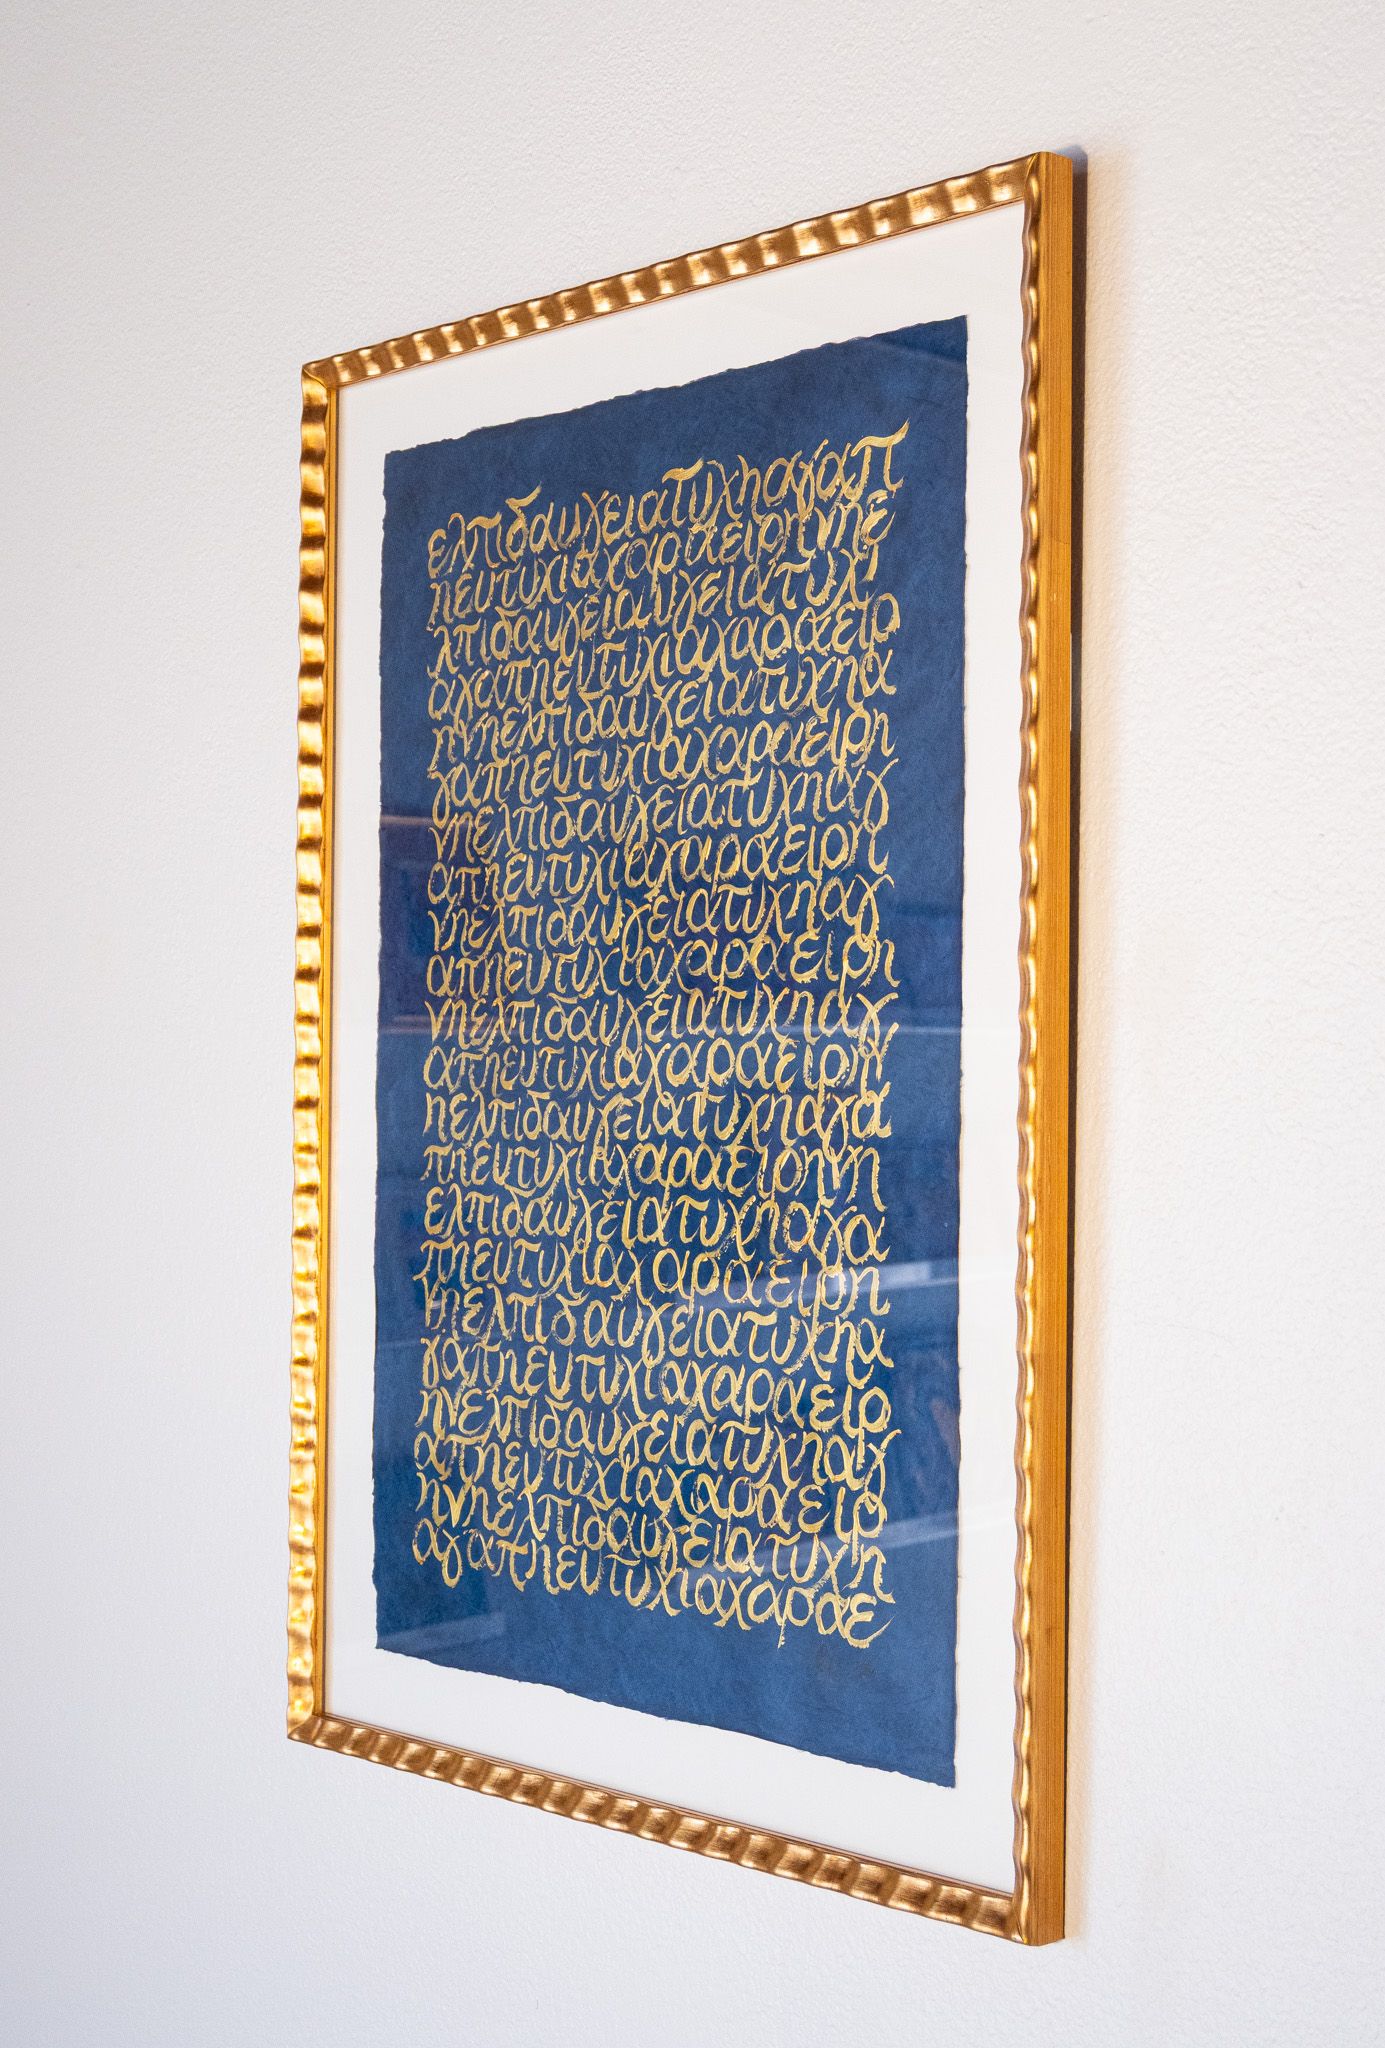 ελπιδαυγειατυχηαγαπ
ηευτυχιαχαραειρηνηε
λπιδαυγειαυγειατυχι
αγαπηευτυχιαχαραειρ
ηνηελπιδαυγειατυχηα
γαπηευτυχιαχαραειρη
νηελπιδαυγειατυχηαγ
απηευτυχιαχαραειρη
νηελπιδαυγειατυχηαγ
απηευτυχιαχαραειρη
νηελπιδαυγειατυχηαγ
απηευτυχιαχαραειρην
ηελπιδαυγειατυχηαγα
πηευτυχιαχαραειρηνη
ελπιδαυγειατυχηαγα
πηευτυχιαχαραειρη
νηελπιδαυγειατυχηα
γαπηευτυχιαχαραειρ
ηνελπιδαυγειατυχηαγ
απηευτυχιαχαραειρ
ηνηελπιδαυγειατυχη
αγαπηευτυχιαχαραε